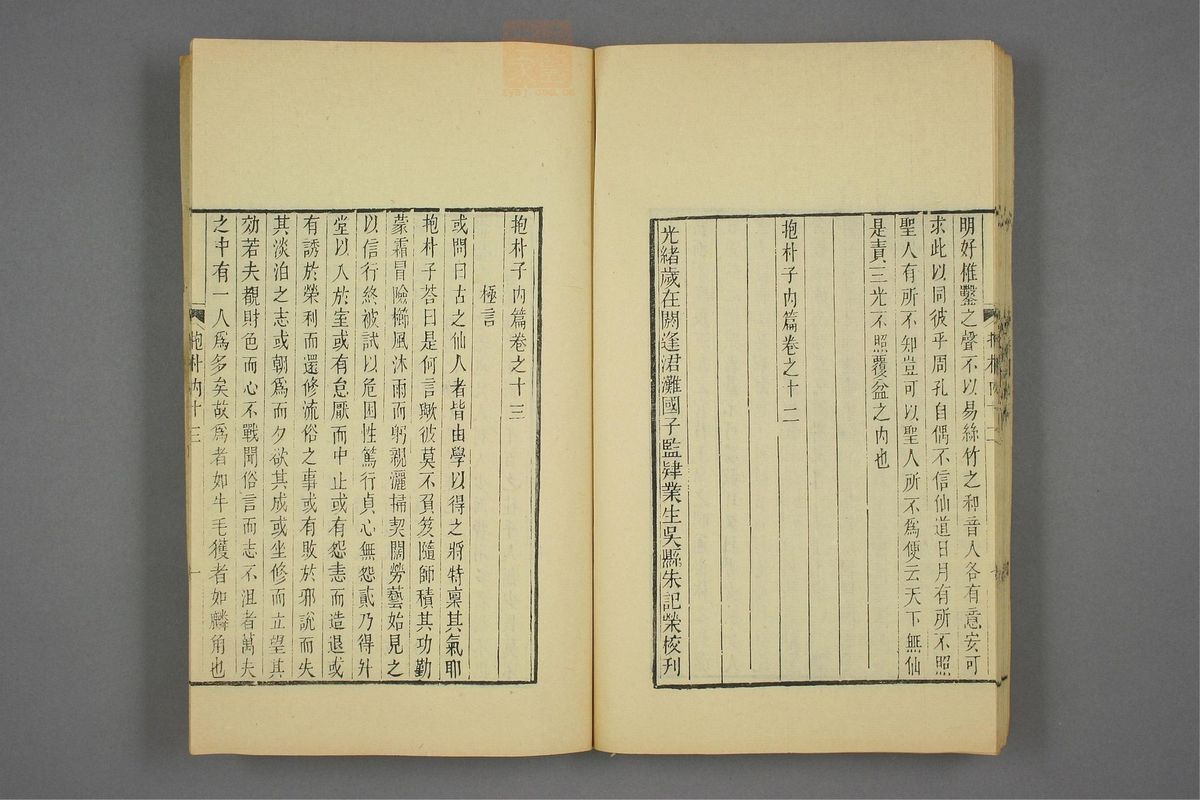 明好椎鑿之聲不以易絲竹之和音人各有意安可
求此以同彼乎周孔自偶不信仙道日月有所不照
聖人有所不知豈可以聖人所不爲便云天下無仙
是責三光不照覆盆之內也
抱朴子內篇卷之十二
光緒歲在閼逢涒灘國子監肄業生吳縣朱記榮校刊
抱朴子內篇卷之十三
極言
或問曰古之仙人者皆由學以得之將特稟其氣耶
抱朴子荅曰是何言歟彼莫不負笈隨師積其功勤
蒙霜冒險櫛風沐雨而躬親灑掃契闊勞藝始見之
以信行終被試以危困性篤行貞心無怨貳乃得升
堂以入於室或有怠厭而中止或有怨恚而造退或
有誘於榮利而還修流俗之事或有敗於邪說而失
其淡泊之志或朝爲而夕欲其成或坐修而立望其
効若夫覩財色而心不戰聞俗言而志不沮者萬夫
之中有一人爲多矣故爲者如牛毛獲者如麟角也
抱朴內十三
一